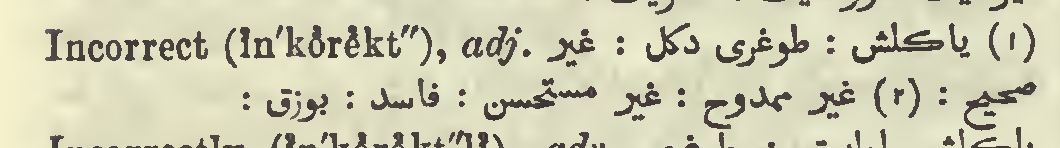 Incorrect (ĭn'kŏrĕkt"), adj. (١) ياكلش : طوغرى دكل : غير
صحيح : (٢) غير ممدوح : غير مستحسن : فاسد : بوزق :